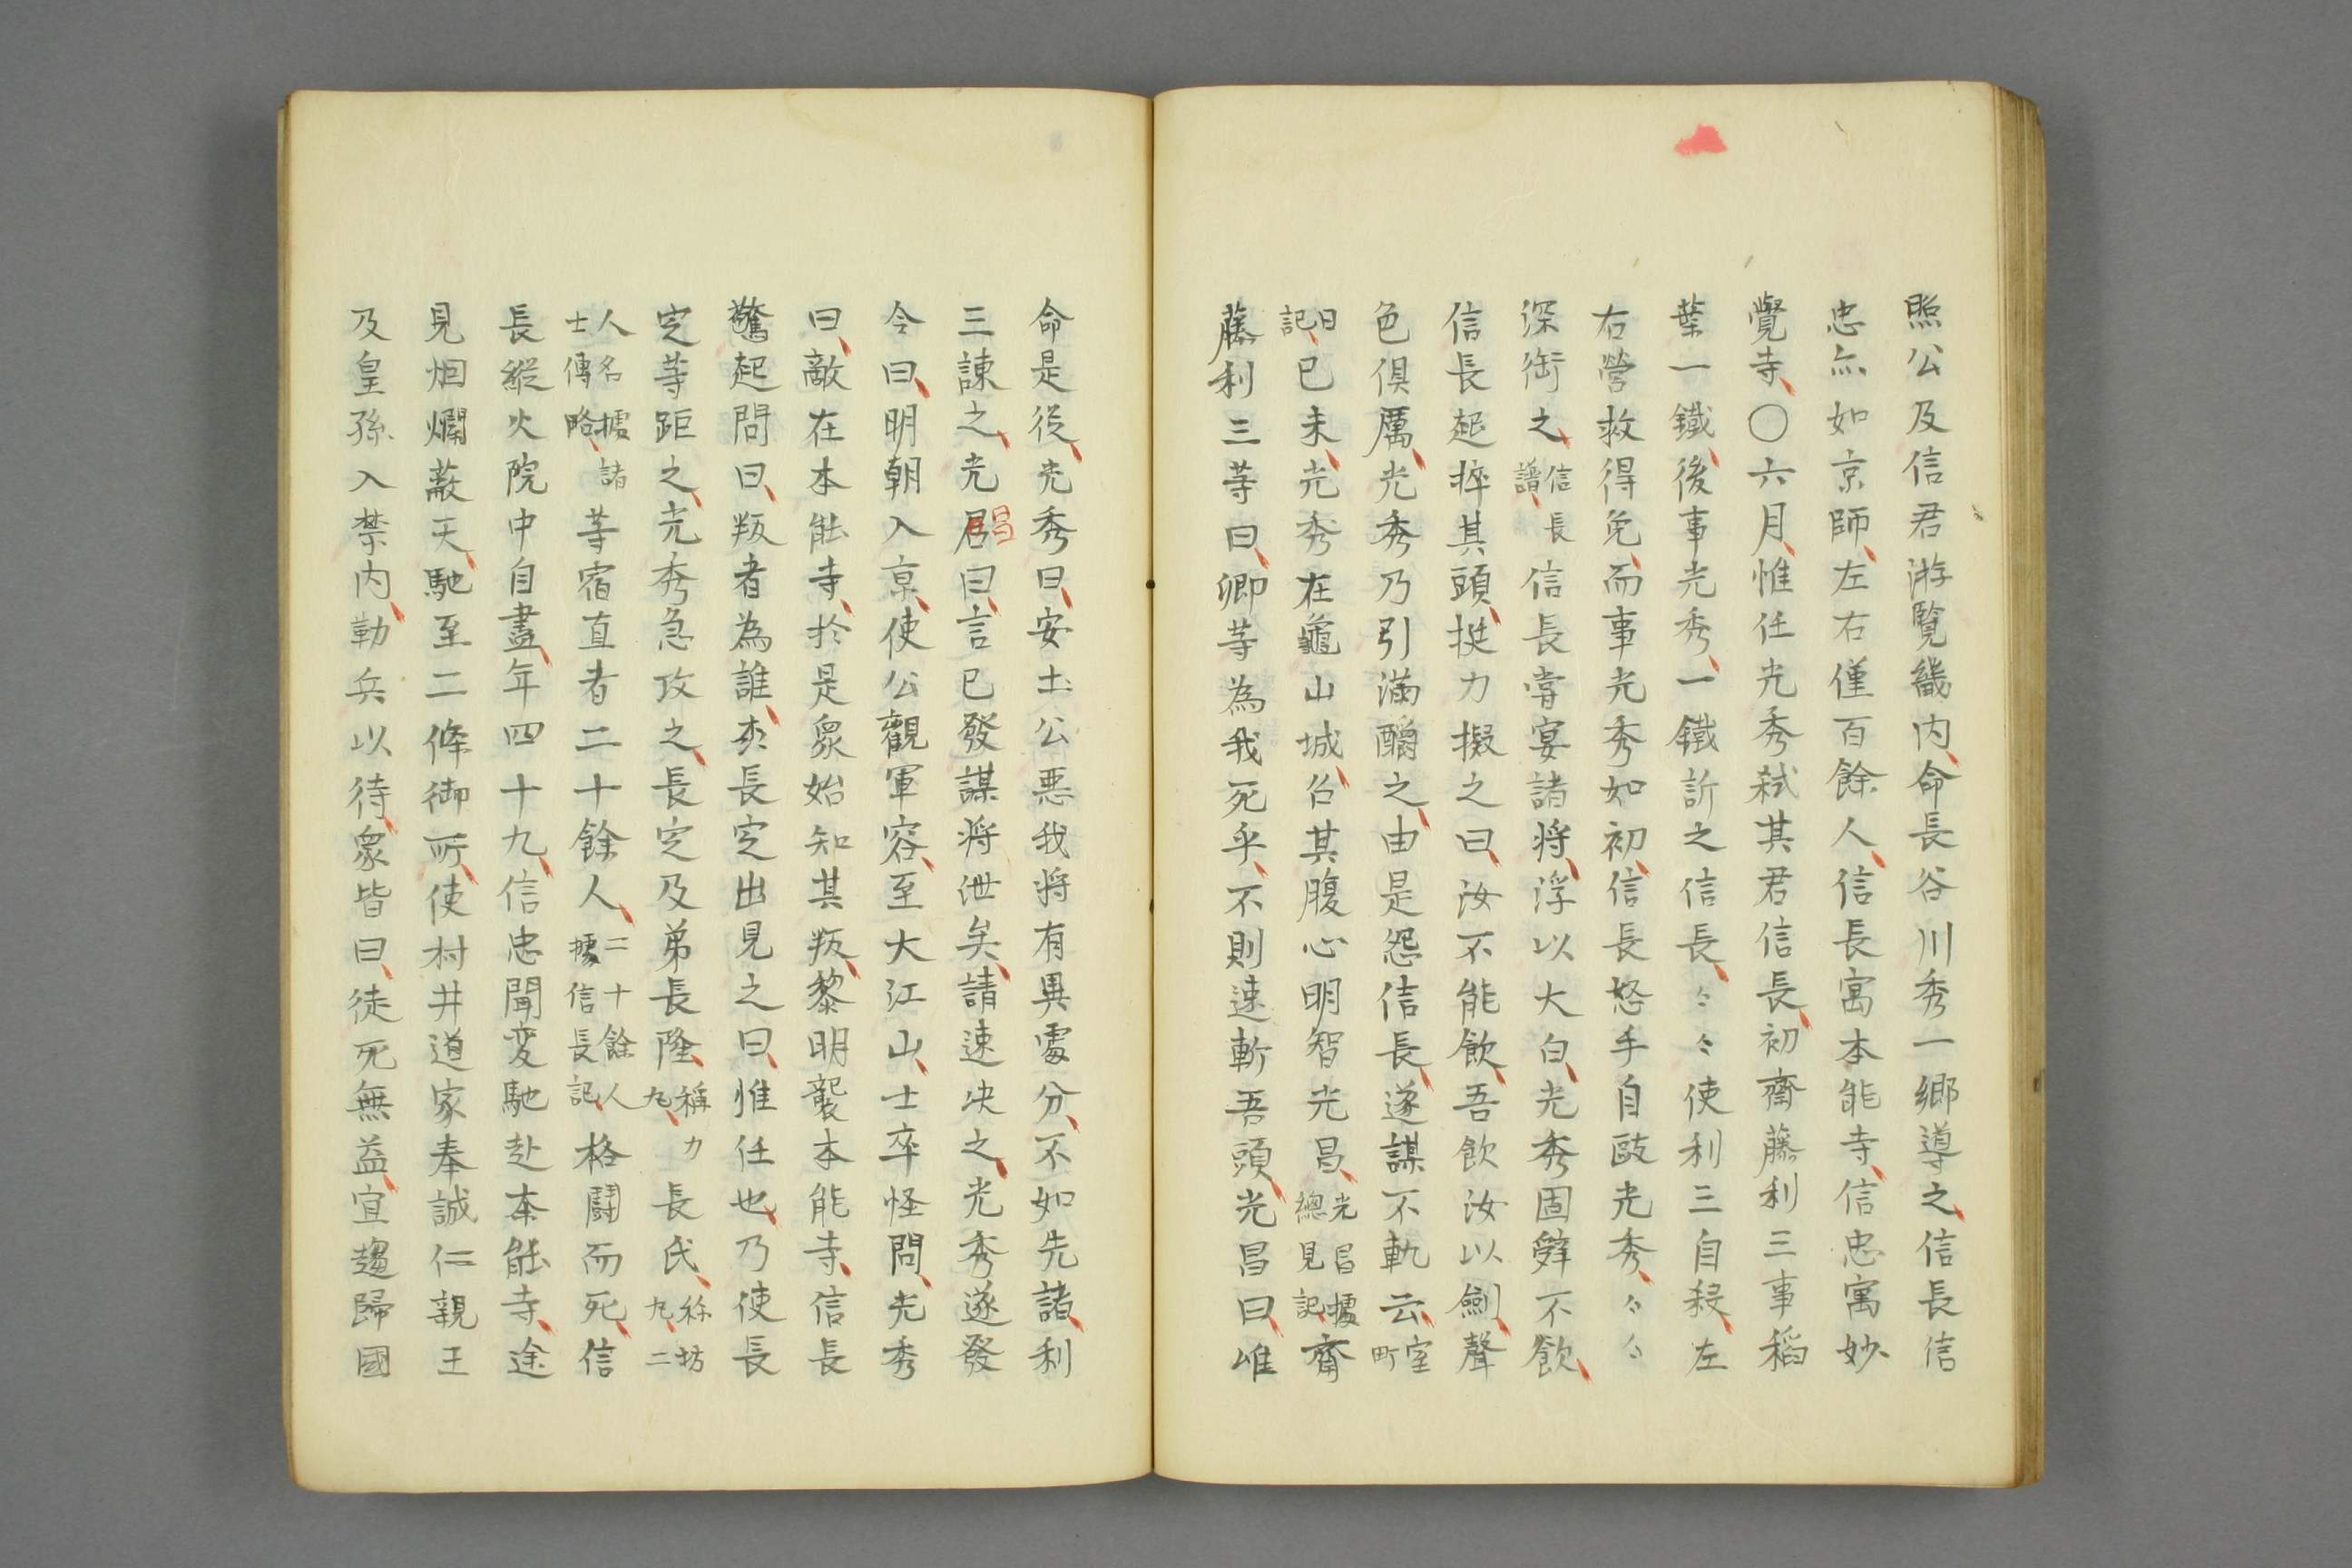 照公及信君游覽畿内命長谷川秀一郷導之信長信
忠亦如京師左右僅百餘人信長寓本能寺信忠寓妙
覺寺〇六月惟任光秀弑其君信長初齋藤利三事稲
葉一鐵後事光秀一鐵訴之信長〻〻使利三自殺左
右營救得免而事光秀如初信長怒手自毆光秀〻〻
深銜之信長譜信長嘗宴諸将浮以大白光秀固辤不飲
信長起捽其頭挺刀擬之曰汝不能飲吾飲汝以劍聲
色倶厲光秀乃引滿釂之由是怨信長遂謀不軌云室町
日記已未光秀在龜山城召其腹心明智光昌光昌據總見記齋
藤利三等曰卿等為我死乎不則速斬吾頭光昌曰唯
命是従光秀曰安土公悪我将有異處分不如先諸利
三諫之光昌曰言已發謀将泄矣請速决之光秀遂發
令曰明朝入京使公觀軍容至大江山士卒怪問光秀
曰敵在本能寺於是衆始知其叛黎明襲本能寺信長
驚起問曰叛者為誰森長定出見之曰惟任也乃使長
定等距之光秀急攻之長定及弟長隆稱力丸長氏称坊丸二
人名據諸士傳略等宿直者二十餘人二十餘人據信長記格鬪而死信
長縱火院中自盡年四十九信忠聞変馳赴本能寺途
見烟爓蔽天馳至二條御所使村井道家奉誠仁親王
及皇孫入禁内勒兵以待衆皆曰徒死無益宜趨歸國